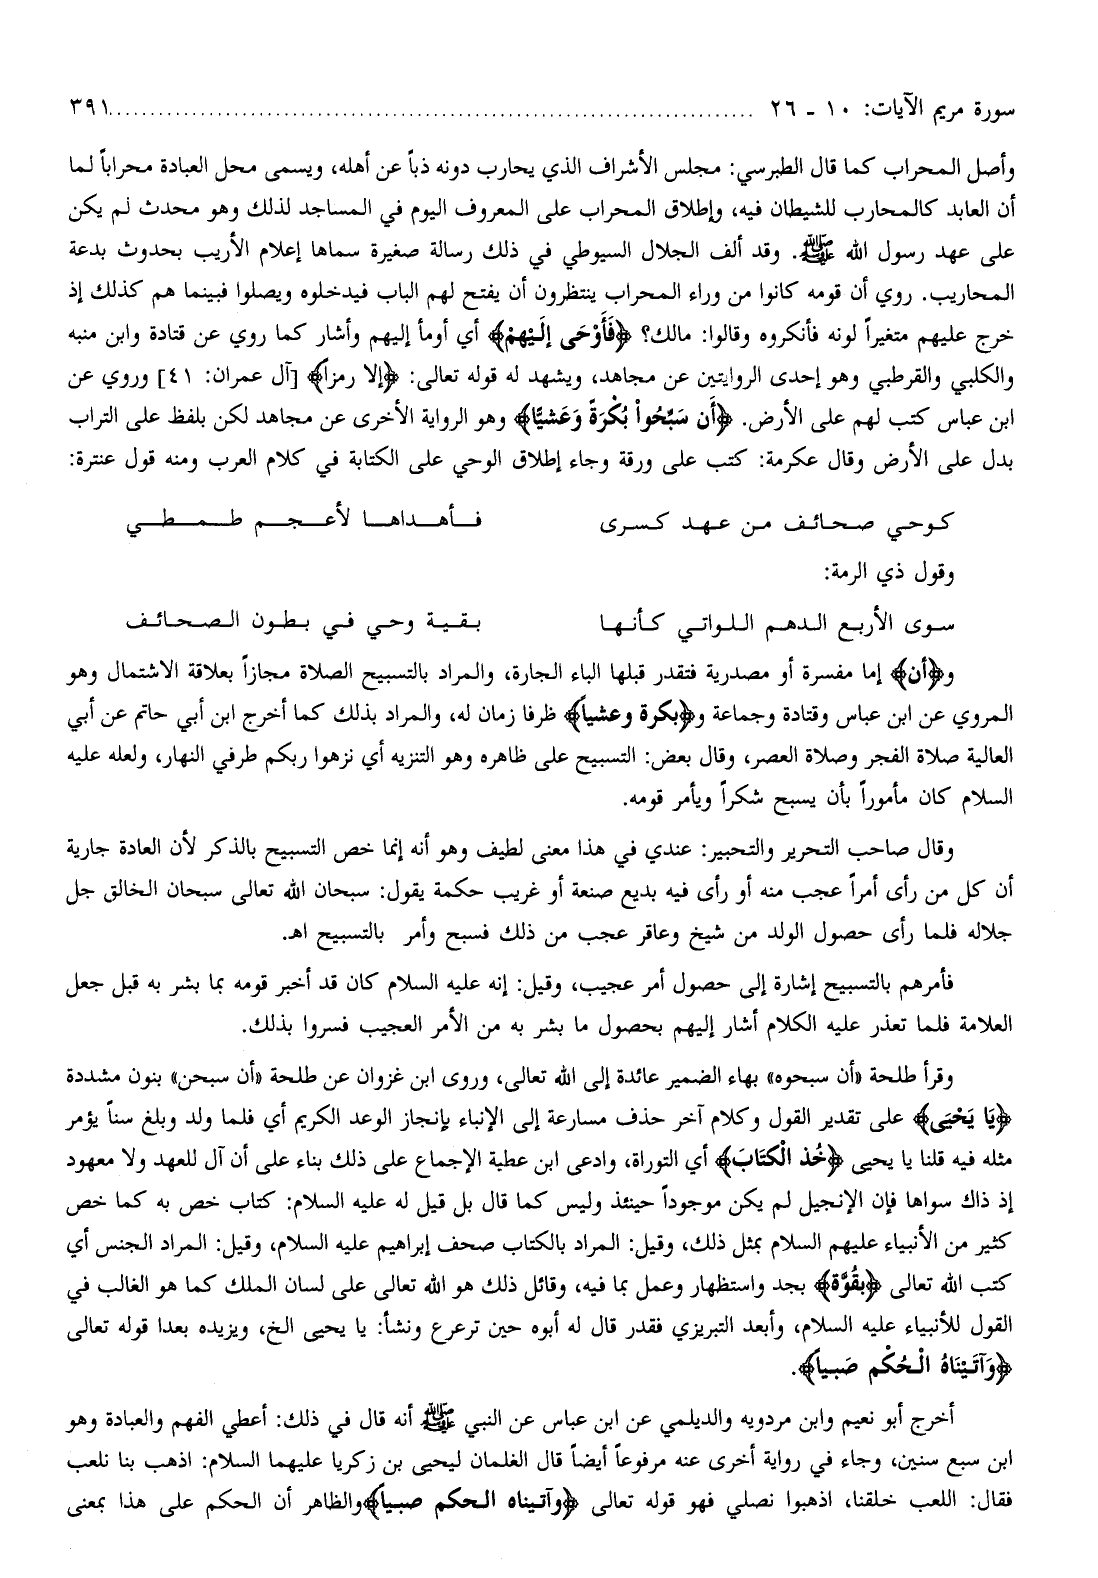 سورة مريم الآيات: ١٠ - ٢٦ ........................................................................ ٣٩١
وأصل المحراب كما قال الطبرسي: مجلس الأشراف الذي يحارب دونه ذباً عن أهله، ويسمى محل العبادة محراباً لما
أن العابد كالمحارب للشيطان فيه، وإطلاق المحراب على المعروف اليوم في المساجد لذلك وهو محدث لم يكن
على عهد رسول الله ﷺ. وقد ألف الجلال السيوطي في ذلك رسالة صغيرة سماها إعلام الأريب بحدوث بدعة
المحاريب. روي أن قومه كانوا من وراء المحراب ينتظرون أن يفتح لهم الباب فيدخلوه ويصلوا فبينما هم كذلك إذ
خرج عليهم متغيراً لونه فأنكروه وقالوا: مالك؟ ﴿فَأَوْحَى إِلَيْهِمْ﴾ أي أومأ إليهم وأشار كما روي عن قتادة وابن منبه
والكلبي والقرطبي وهو إحدى الروايتين عن مجاهد، ويشهد له قوله تعالى: ﴿إلا رمزاً﴾ [آل عمران: ٤١] وروي عن
ابن عباس كتب لهم على الأرض. ﴿أَن سَبِّحُواْ بُكْرَةً وَعَشيًّا﴾ وهو الرواية الأخرى عن مجاهد لكن بلفظ على التراب
بدل على الأرض وقال عكرمة: كتب على ورقة وجاء إطلاق الوحي على الكتابة في كلام العرب ومنه قول عنترة:
كوحي صحائف من عهد كسرى فأهداها لأعجم طمطي
وقول ذي الرمة:
سوى الأربع الدهم اللواتي كأنها بقية وحي في بطون الصحائف
و﴿أن﴾ إما مفسرة أو مصدرية فتقدر قبلها الباء الجارة، والمراد بالتسبيح الصلاة مجازاً بعلاقة الاشتمال وهو
المروي عن ابن عباس وقتادة وجماعة و﴿بكرة وعشياً﴾ ظرفا زمان له، والمراد بذلك كما أخرج ابن أبي حاتم عن أبي
العالية صلاة الفجر وصلاة العصر، وقال بعض: التسبيح على ظاهره وهو التنزيه أي نزهوا ربكم طرفي النهار، ولعله عليه
السلام كان مأموراً بأن يسبح شكراً ويأمر قومه.
وقال صاحب التحرير والتحبير: عندي في هذا معنى لطيف وهو أنه إنما خص التسبيح بالذكر لأن العادة جارية
أن كل من رأى أمراً عجب منه أو رأى فيه بديع صنعة أو غريب حكمة يقول: سبحان الله تعالى سبحان الخالق جل
جلاله فلما رأى حصول الولد من شيخ وعاقر عجب من ذلك فسبح وأمر بالتسبيح اهـ.
فأمرهم بالتسبيح إشارة إلى حصول أمر عجيب، وقيل: إنه عليه السلام كان قد أخبر قومه بما بشر به قبل جعل
العلامة فلما تعذر عليه الكلام أشار إليهم بحصول ما بشر به من الأمر العجيب فسروا بذلك.
وقرأ طلحة «أن سبحوه» بهاء الضمير عائدة إلى الله تعالى، وروى ابن غزوان عن طلحة «أن سبحن» بنون مشددة
﴿يَا يَحْيَى﴾ على تقدير القول وكلام آخر حذف مسارعة إلى الإنباء بإنجاز الوعد الكريم أي فلما ولد وبلغ سناً يؤمر
مثله فيه قلنا يا يحيى ﴿خُذ الْكتَابَ﴾ أي التوراة، وادعى ابن عطية الإجماع على ذلك بناء على أن آل للعهد ولا معهود
إذ ذاك سواها فإن الإنجيل لم يكن موجوداً حينئذ وليس كما قال بل قيل له عليه السلام: كتاب خص به كما خص
كثير من الأنبياء عليهم السلام بمثل ذلك، وقيل: المراد بالكتاب صحف إبراهيم عليه السلام، وقيل: المراد الجنس أي
كتب الله تعالى ﴿بقُوَّة﴾ بجد واستظهار وعمل بما فيه، وقائل ذلك هو الله تعالى على لسان الملك كما هو الغالب في
القول للأنبياء عليه السلام، وأبعد التبريزي فقدر قال له أبوه حين ترعرع ونشأ: يا يحيى الخ، ويزيده بعدا قوله تعالى
﴿وَآتَيْنَاهُ الْحُكْم صَبياً﴾.
أخرج أبو نعيم وابن مردويه والديلمي عن ابن عباس عن النبي ﷺ أنه قال في ذلك: أعطي الفهم والعبادة وهو
ابن سبع سنين، وجاء في رواية أخرى عنه مرفوعاً أيضاً قال الغلمان ليحيى بن زكريا عليهما السلام: اذهب بنا نلعب
فقال: اللعب خلقنا، اذهبوا نصلي فهو قوله تعالى ﴿وآتيناه الحكم صبياً﴾والظاهر أن الحكم على هذا بمعنى